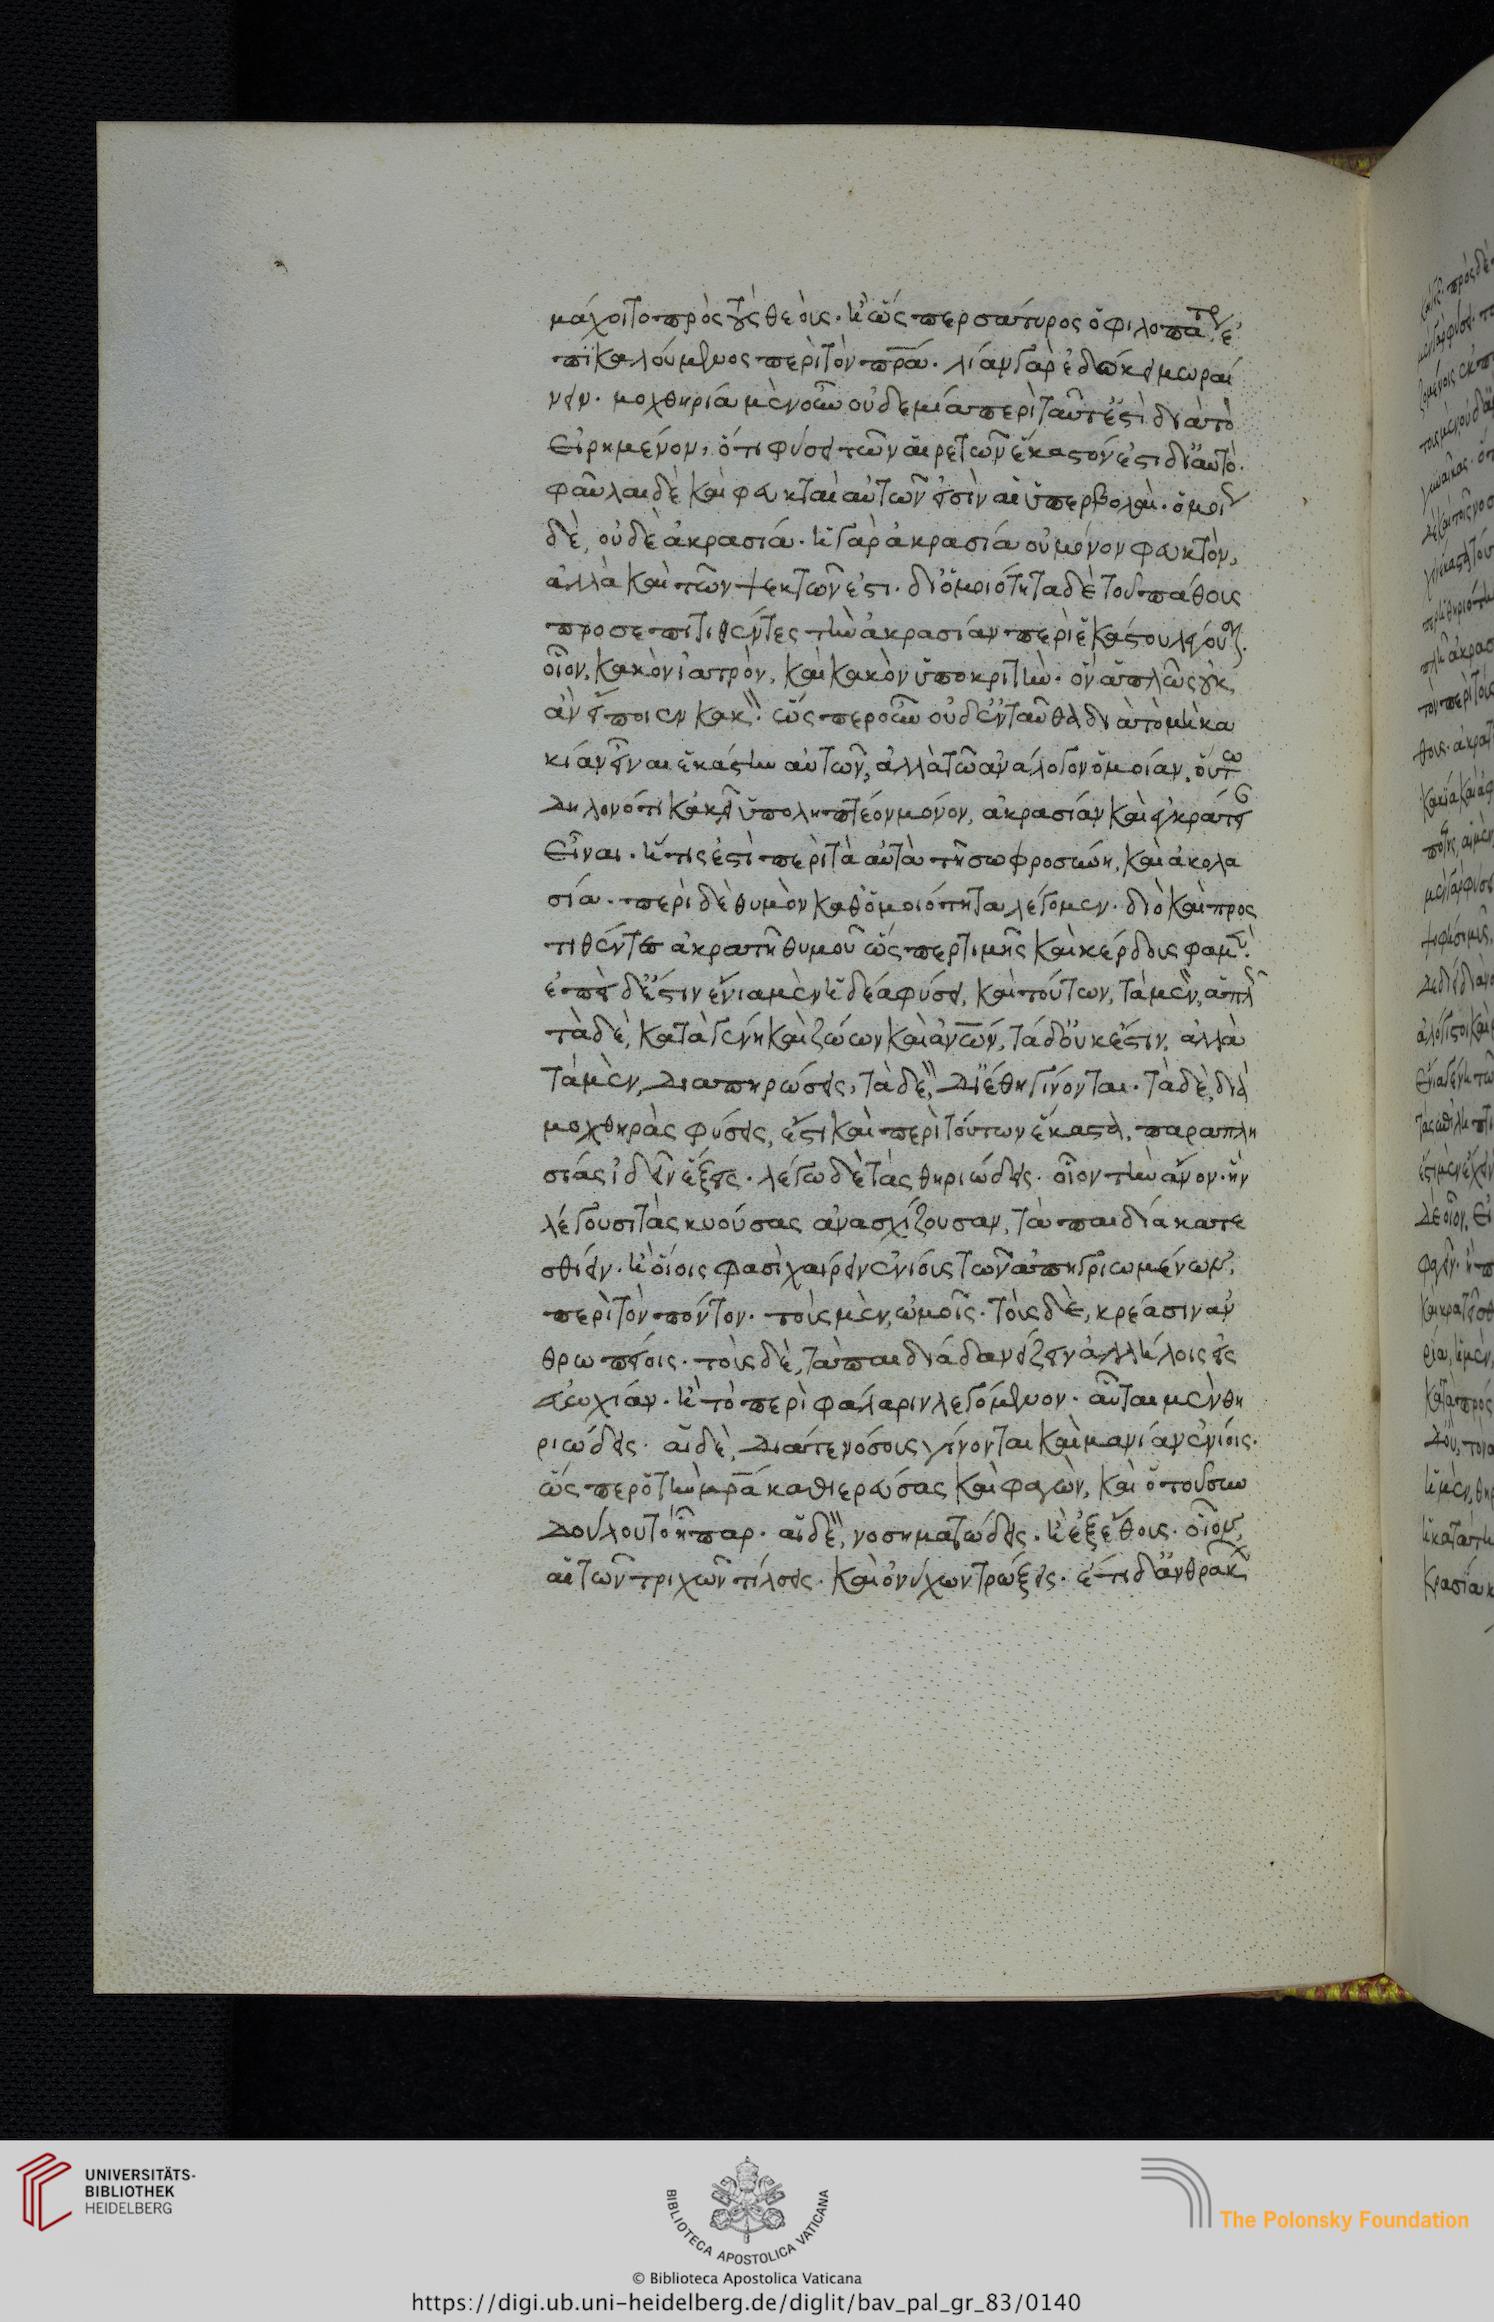 μάχοιτο πρὸς τοὺς θεούς. ἢ ὥς περ σάτυρος ὁ φιλοπάτωρ ἐ
πικαλούμενος περὶ τὸν πρᾱ́. λίαν γὰρ ἐδόκει μωραί
νειν. μοχθηρία μὲν οὖν οὐδεμία περὶ ταῦτ' ἔστι διὰ τὸ
εἰρημένον, ὅτι φύσει τῶν αἱρετῶν ἕκαστόν ἐστι δι' αὑτό.
φαῦλαι δὲ καὶ φευκταὶ αὐτῶν εἰσὶν αἱ ὑπερβολαί. ὅμοι
δὲ, οὐδὲ ἀκρασία. ἡ γὰρ ἀκρασία οὐ μόνον φευκτὸν,
ἀλλὰ καὶ τῶν ψεκτῶν ἐστι. δι' ὁμοιότητα δὲ τοῦ πάθους
προσεπιτιθέντες τὴν ἀκρασίαν περὶ ἑκάστου λέγουσι.
οἷον, κακὸν ἰατρὸν, καὶ κακὸν ὑποκριτὴν. ὃν ἁπλῶς οὐκ
ἂν εἴποιεν κακόν. ὥς περ οὖν οὐδ' ἐνταῦθα διὰ τὸ μὴ κα
κίαν εἶναι ἑκάστην αὐτῶν, ἀλλὰ τῶ ἀνάλογον ὁμοίαν, οὕτω
δηλονότι κἀκεῖ ὑποληπτέον μόνον, ἀκρασίαν καὶ ἐγκράτειαν
εἶναι. ἥτις ἐστὶ περὶ τὰ αὐτὰ τῇ σωφροσύνη, καὶ ἀκολα
σία. περὶ δὲ θυμὸν καθ' ὁμοιότητα λέγομεν. διὸ καὶ προς
τιθέντες ἀκρατῆ θυμοῦ ὥς περ τιμῆς καὶ κέρδους φαμέν.
ἐπεὶ δ' ἔστιν ἔνια μὲν ἡδέα φύσει, καὶ τούτων, τὰ μὲν, ἁπλῶς
τὰ δὲ, κατὰ γένη καὶ ζώων καὶ ἀνῶν, τὰ δ' οὐκ ἔστιν, ἀλλὰ
τὰ μὲν, διὰ πηρώσεις, τὰ δὲ, δι' ἔθη γίνονται. τὰ δὲ, διὰ
μοχθηρὰς φύσεις, ἔστι καὶ περὶ τούτων ἕκαστα, παραπλη
σίας ἰδεῖν ἕξεις. λέγω δὲ τὰς θηριώδεις. οἷον τὴν ἄνον. ἣν
λέγουσι τὰς κυούσας ἀνασχίζουσαν, τὰ παιδία κατε
σθίειν. ἢ οἵοις φασὶ χαίρειν ἐνίους τῶν ἀπηγριωμένων,
περὶ τὸν πόντον. τοὺς μὲν, ὠμοῖς. τοὺς δὲ, κρέασιν ἀν
θρωπείοις. τοὺς δὲ, τὰ παιδία δανείζειν ἀλλήλοις εἰς
εὐωχίαν. ἢ τὸ περὶ φάλαριν λεγόμενον. αὗται μὲν θη
ριώδεις. αἱ δὲ, διά τε νόσους γίνονται καὶ μανίαν ἐνίοις.
ὥς περ ὁ τὴν μρᾱ́ καθιερεύσας καὶ φαγὼν, καὶ ὁ τοῦ συν
δούλου τὸ ἧπαρ. αἱ δὲ, νοσηματώδεις. ἢ ἐξ ἔθους. οἷον,
αἱ τῶν τριχῶν τίλσεις. καὶ ὀνύχων τρώξεις. ἔτι δ' ἀνθράκων
UNIVERSITÄTS-
BIBLIOTHEK
HEIDELBERG
BIBLIOTECA APOSTOLICA VATICANA
The Polonsky Foundation
© Biblioteca Apostolica Vaticana
https://digi.ub.uni-heidelberg.de/diglit/bav_pal_gr_83/0140